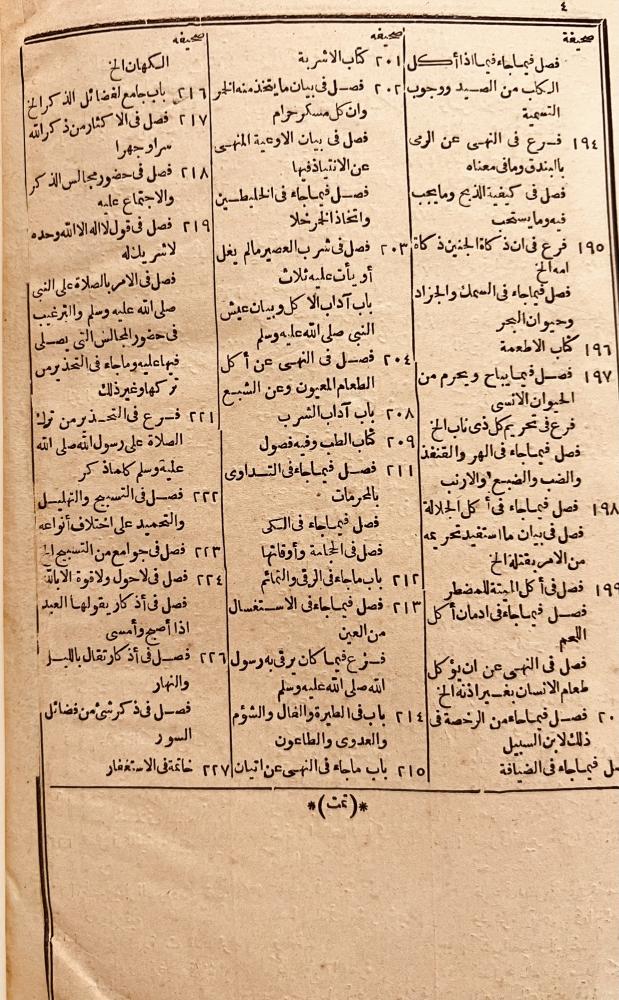 ٤
صحيفة
فصل فيما جاء فيما اذا أكل
الكلب من الصيد ووجوب
التسمية
١٩٤ فرع فى النهى عن الرمى
بالبندق وما فى معناه
فصل فى كيفية الذبح وما يجب
فيه وما يستحب
١٩٥ فرع فى ان ذكاة الجنين ذكاة
امه الخ
فصل فيما جاء فى السمك والجراد
وحيوان البحر
١٩٦ كتاب الاطعمة
١٩٧ فصل فيما يباح ويحرم من
الحيوان الانسى
فرع فى تحريم كل ذى ناب الخ
فصل فيما جاء فى الهر والقنفذ
والضب والضبع والارنب
١٩٨ فصل فيما جاء فى أكل الجلالة
فصل فى بيان ما استفيد تحريمه
من الامر بقتله الخ
١٩٩ فصل فى أكل الميتة للمضطر
فصل فيما جاء فى ادمان أكل
اللحم
فصل فى النهى عن ان يؤكل
طعام الانسان بغير اذنه الخ
٢٠ فصل فيما جاء من الرخصة فى
ذلك لابن السبيل
فصل فيما جاء فى الضيافة
صحيفه
٢٠١ كتاب الاشربة
٢٠٢ فصل فى بيان ما يتخذ منه الخمر
وان كل مسكر حرام
فصل فى بيان الاوعية المنهى
عن الانتباذ فيها
فصل فيما جاء فى الخليطين
واتخاذ الخمر خلا
٢٠٣ فصل فى شرب العصير مالم يغل
أو يأت عليه ثلاث
باب آداب الاكل وبيان عيش
النبى صلى الله عليه وسلم
٢٠٤ فصل فى النهى عن أكل
الطعام المعيون وعن الشبع
٢٠٨ باب آداب الشرب
٢٠٩ كتاب الطب وفيه فصول
٢١١ فصل فيما جاء فى التداوى
بالمحرمات
فصل فيما جاء فى الكى
فصل فى الحجامة وأوقاتها
٢١٢ باب ماجاء فى الرقى والتمائم
٢١٣ فصل فيما جاء فى الاستغسال
من العين
فرع فيما كان يرقى به رسول
الله صلى الله عليه وسلم
٢١٤ باب فى الطيرة والفال والشؤم
والعدوى والطاعون
٢١٥ باب ماجاء فى النهى عن اتيان
صحيفه
الكهان الخ
٢١٦ باب جامع لفضائل الذكر الخ
٢١٧ فصل فى الاكثار من ذكر الله
سرا وجهرا
٢١٨ فصل فى حضور مجالس الذكر
والاجتماع عليه
٢١٩ فصل فى قول لااله الاالله وحده
لاشريك له
فصل فى الامر بالصلاة على النبى
صلى الله عليه وسلم والترغيب
فى حضور المجالس التى يصلى
فيها عليه وماجاء فى التحذير من
تركها وغير ذلك
٢٢١ فرع فى التحذير من ترك
الصلاة على رسول الله صلى الله
عليه وسلم كلما ذكر
٢٢٢ فصل فى التسبيح والتهليل
والتحميد على اختلاف أنواعه
٢٢٣ فصل فى جوامع من التسبيح الخ
٢٢٤ فصل فى لاحول ولا قوة الا بالله
فصل فى أذكار يقولها العبد
اذا أصبح وأمسى
٢٢٦ فصل فى أذكار تقال بالليل
والنهار
فصل فى ذكر شئ من فضائل
السور
٢٢٧ خاتمة فى الاستغفار
*(تمت)*